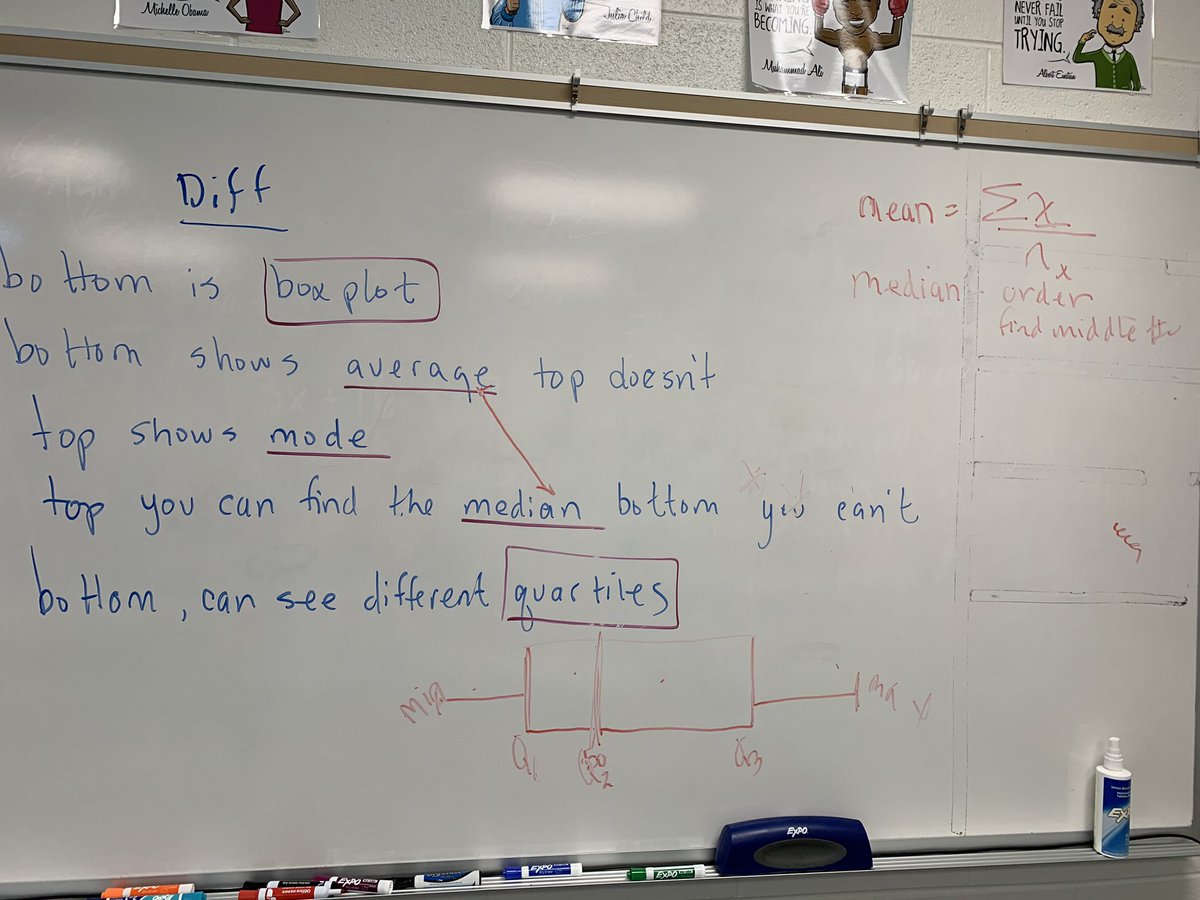 Michelle Obama
Julia Child
IS WHAT YOU'RE
BECOMING.
Muhammad Ali
NEVER FAIL
UNTIL YOU STOP
TRYING.
Albert Einstein
Diff
bottom is box plot
bottom shows average top doesn't
top shows mode
top you can find the median bottom you can't
bottom, can see different quartiles
mean = Σx
nx
median - order
find middle #
min
max
Q1
Q2
Q3
EXPO
EXPO
EXPO
EXPO
EXPO